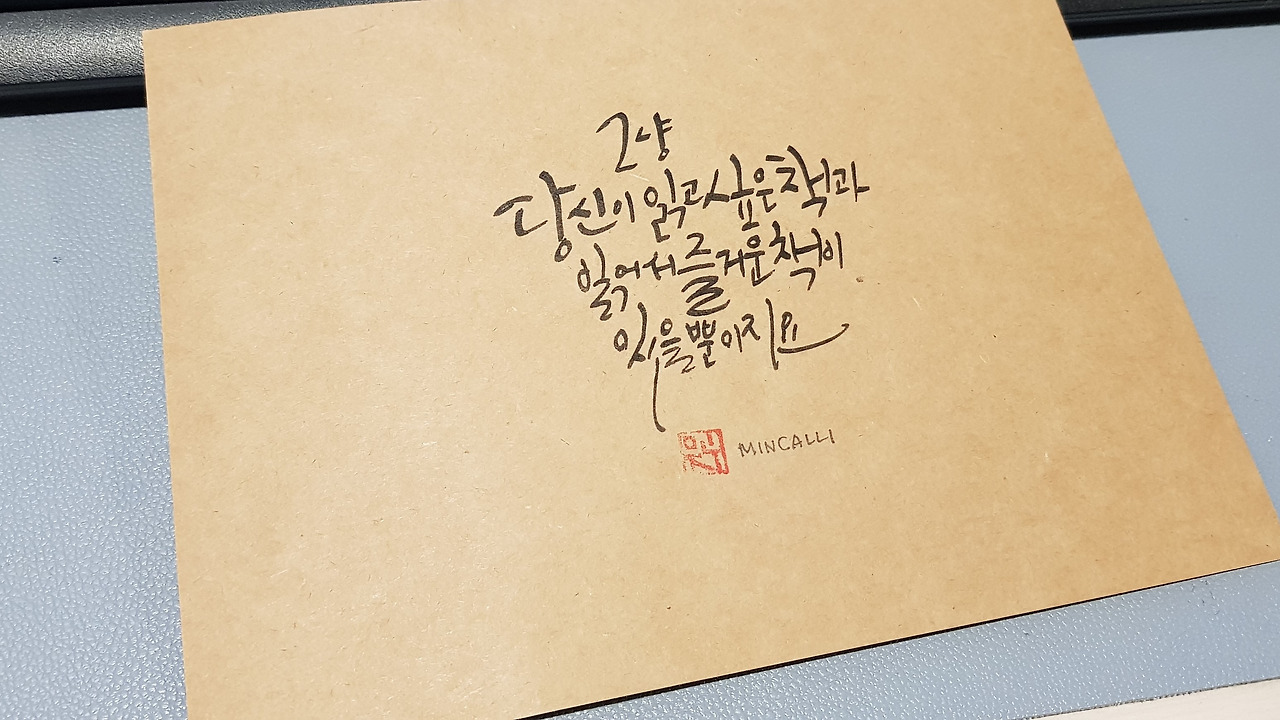 그냥
당신이 읽고 싶은 책과
읽어서 즐거운 책이
있을 뿐이지요
MINCALLI